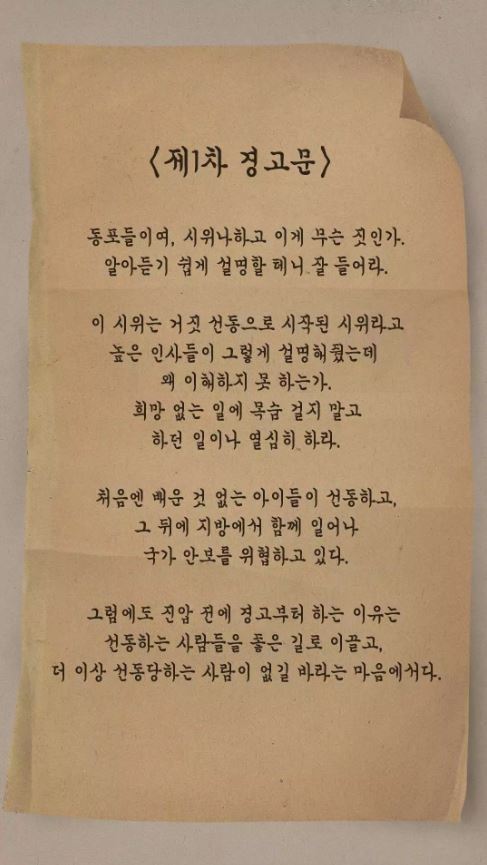 〈제1차 경고문〉
동포들이여, 시위나하고 이게 무슨 짓인가.
알아듣기 쉽게 설명할 테니 잘 들어라.
이 시위는 거짓 선동으로 시작된 시위라고
높은 인사들이 그렇게 설명해줬는데
왜 이해하지 못 하는가.
희망 없는 일에 목숨 걸지 말고
하던 일이나 열심히 하라.
처음엔 배운 것 없는 아이들이 선동하고,
그 뒤에 지방에서 함께 일어나
국가 안보를 위협하고 있다.
그럼에도 진압 전에 경고부터 하는 이유는
선동하는 사람들을 좋은 길로 이끌고,
더 이상 선동당하는 사람이 없길 바라는 마음에서다.